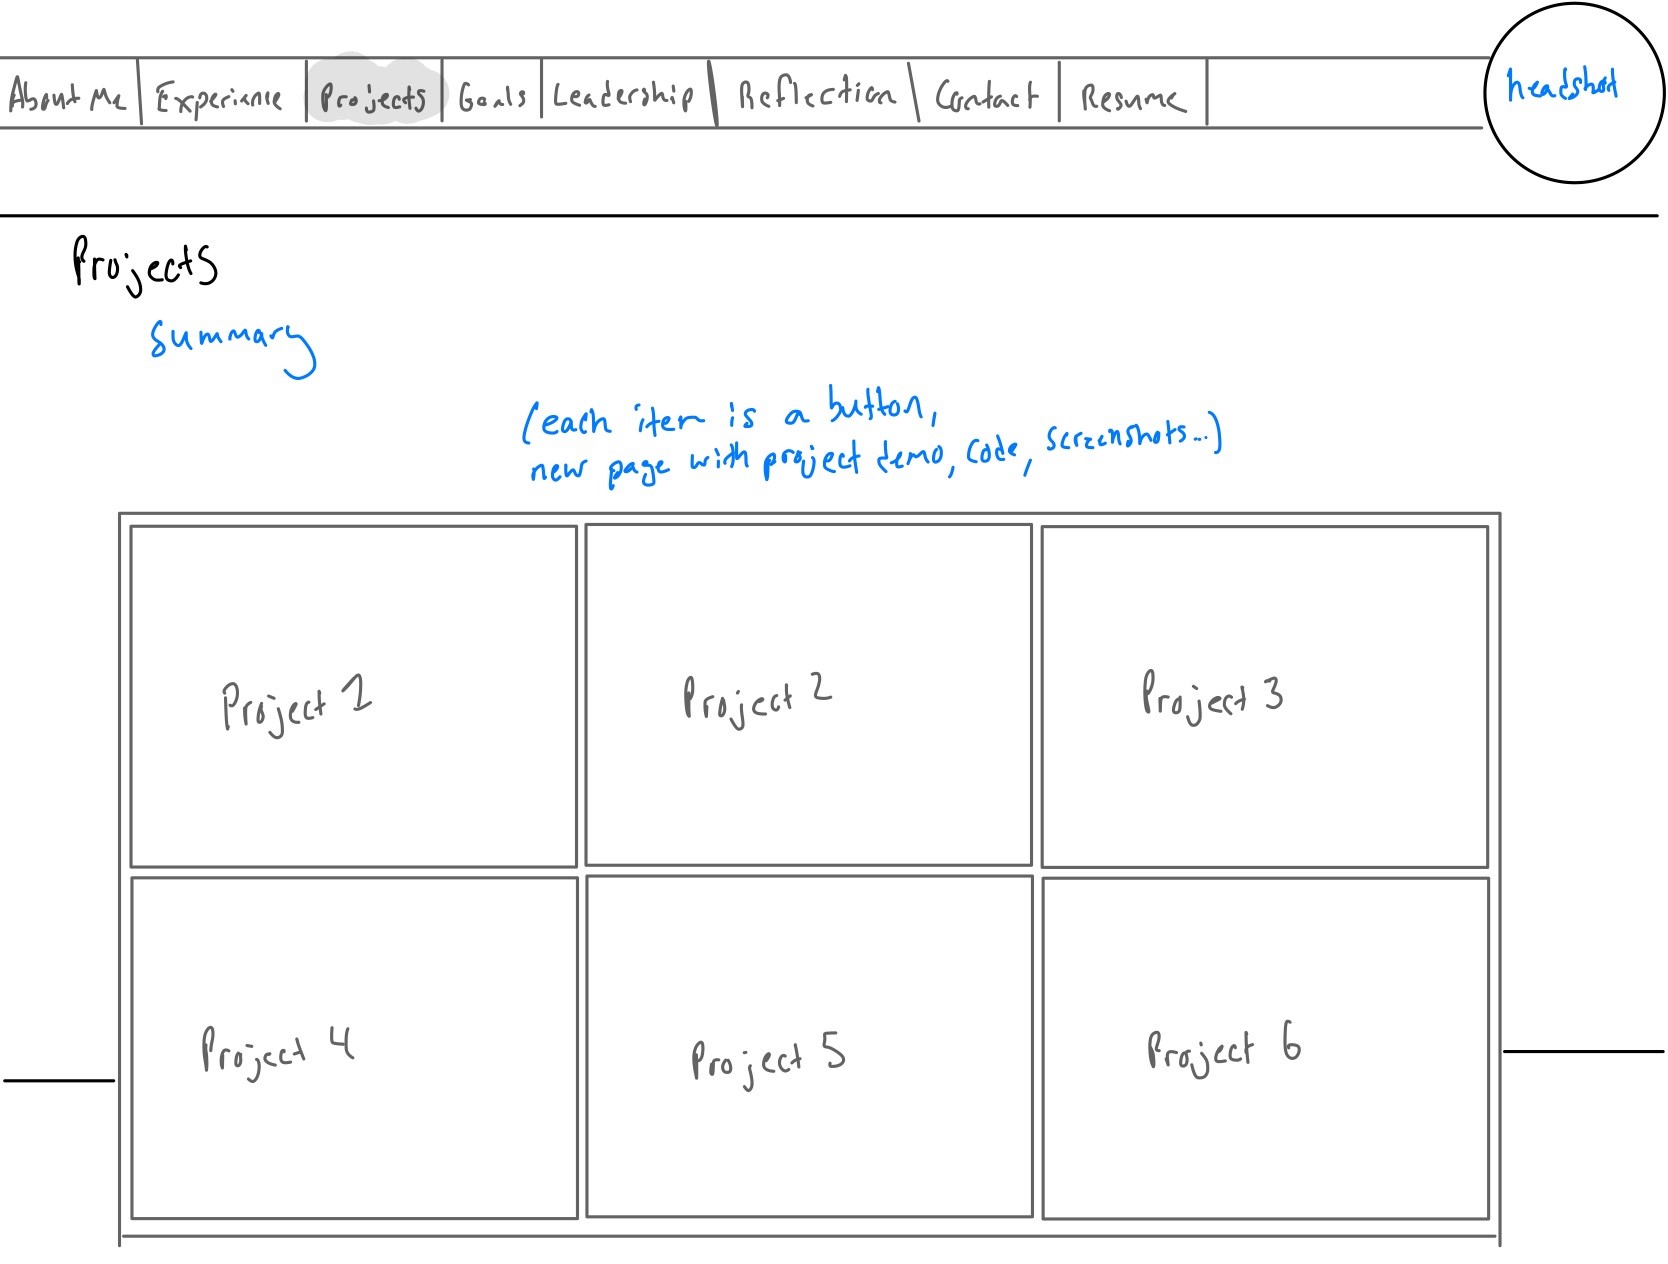 About Me Experience Projects Goals Leadership Reflection Contact Resume headshot
Projects
Summary
(each item is a button,
new page with project demo, code, screenshots...)
Project 1 Project 2 Project 3
Project 4 Project 5 Project 6